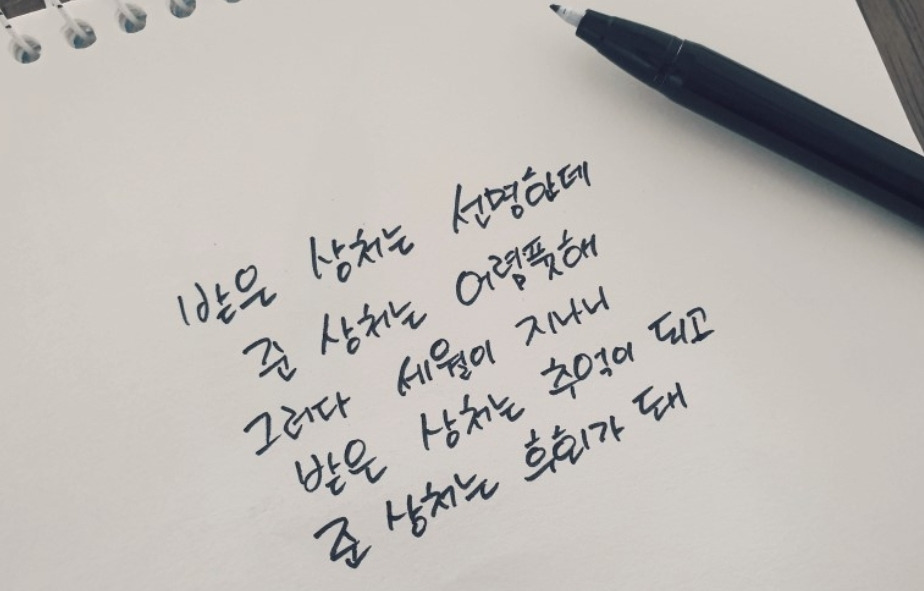 받은 상처는 선명한데
준 상처는 어렴풋해
그러다 세월이 지나니
받은 상처는 추억이 되고
준 상처는 후회가 돼